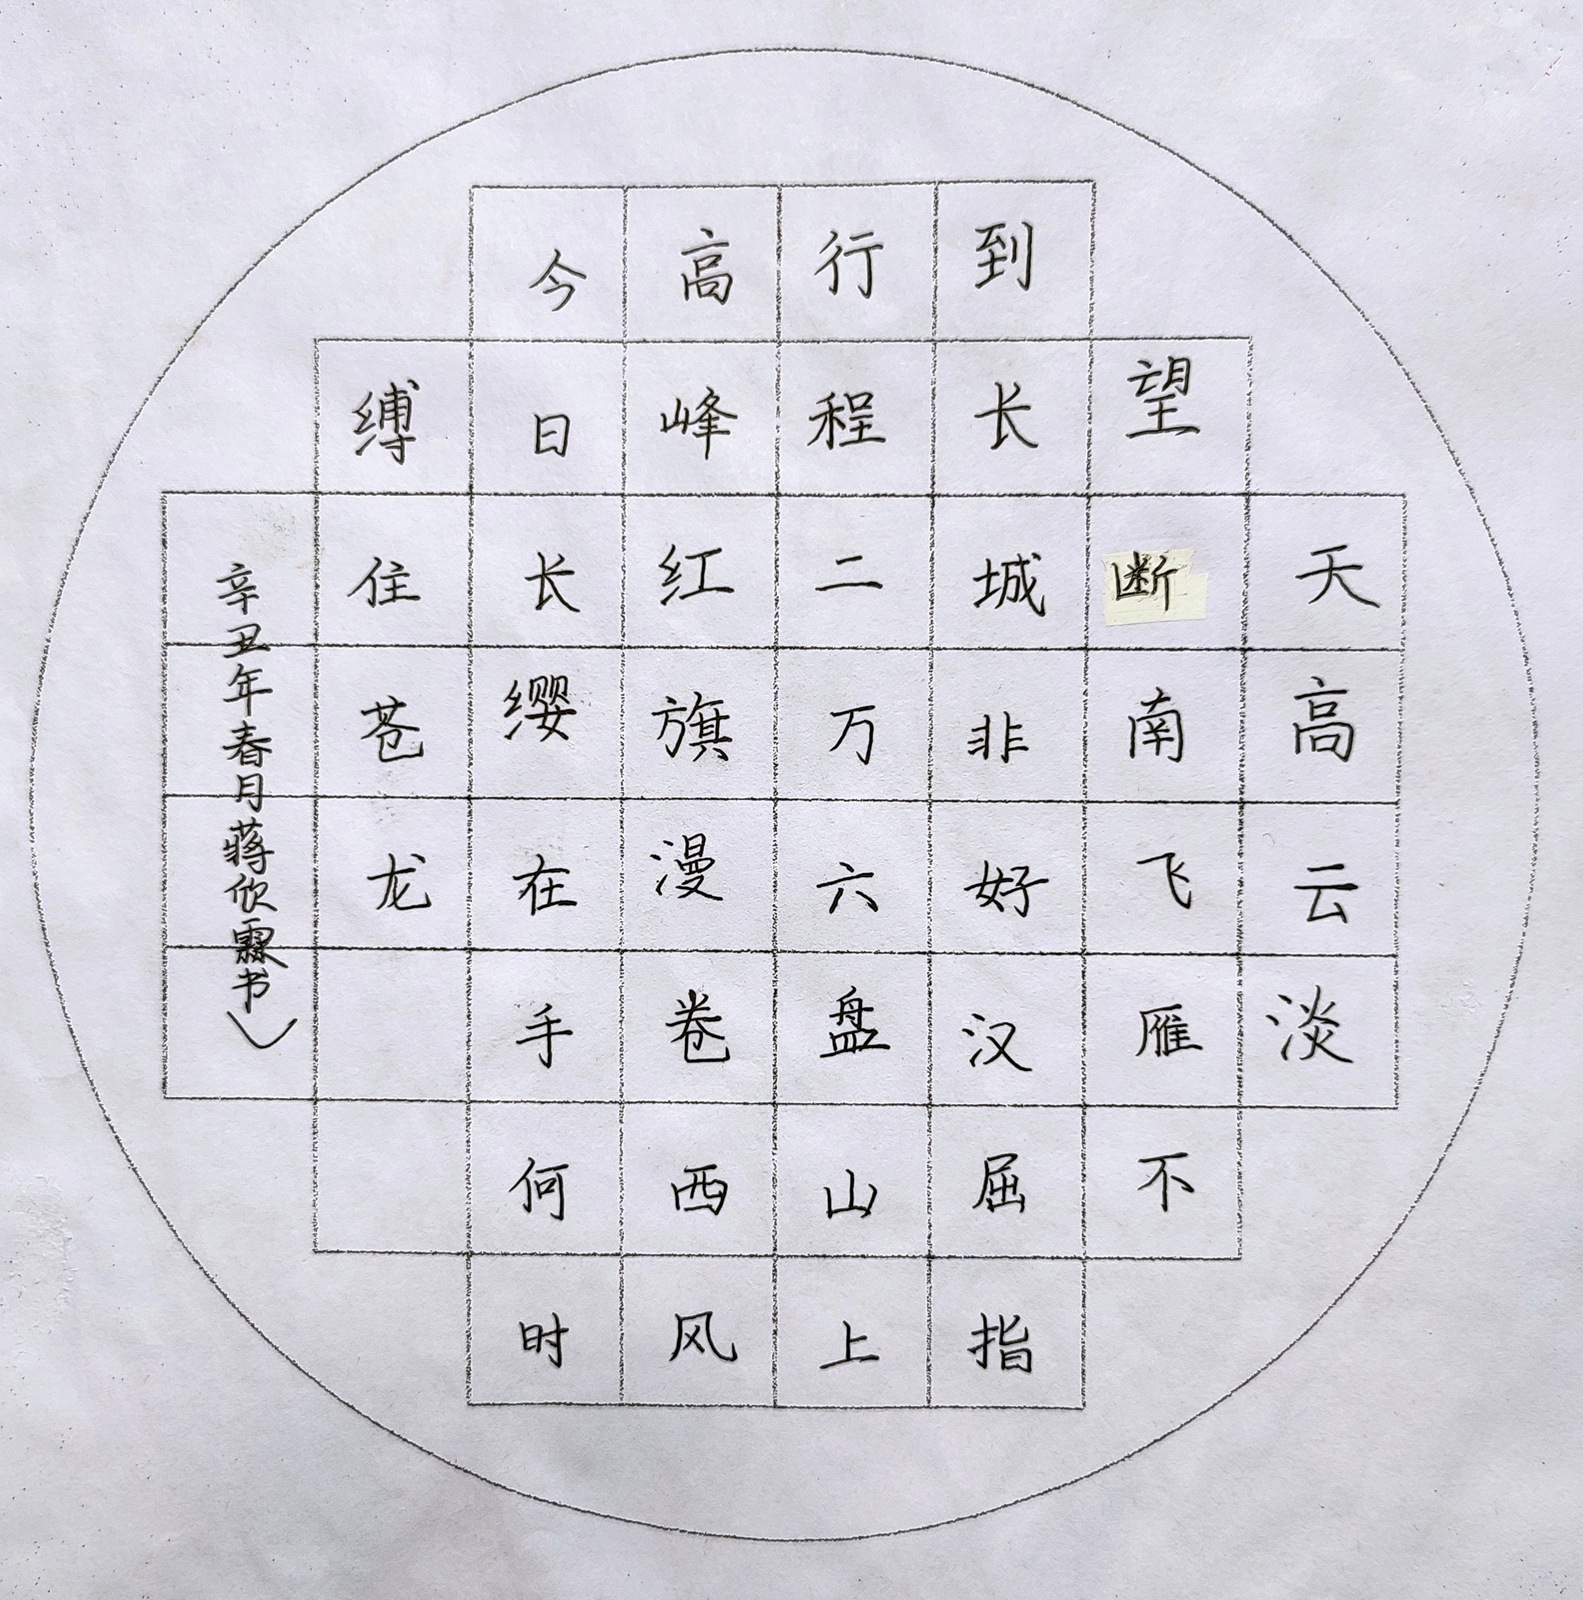 天高云淡
望断南飞雁不
到长城非好汉屈指
行程二万六盘山上
高峰红旗漫卷西风
今日长缨在手何时
缚住苍龙
辛丑年春月蒋欣霖书